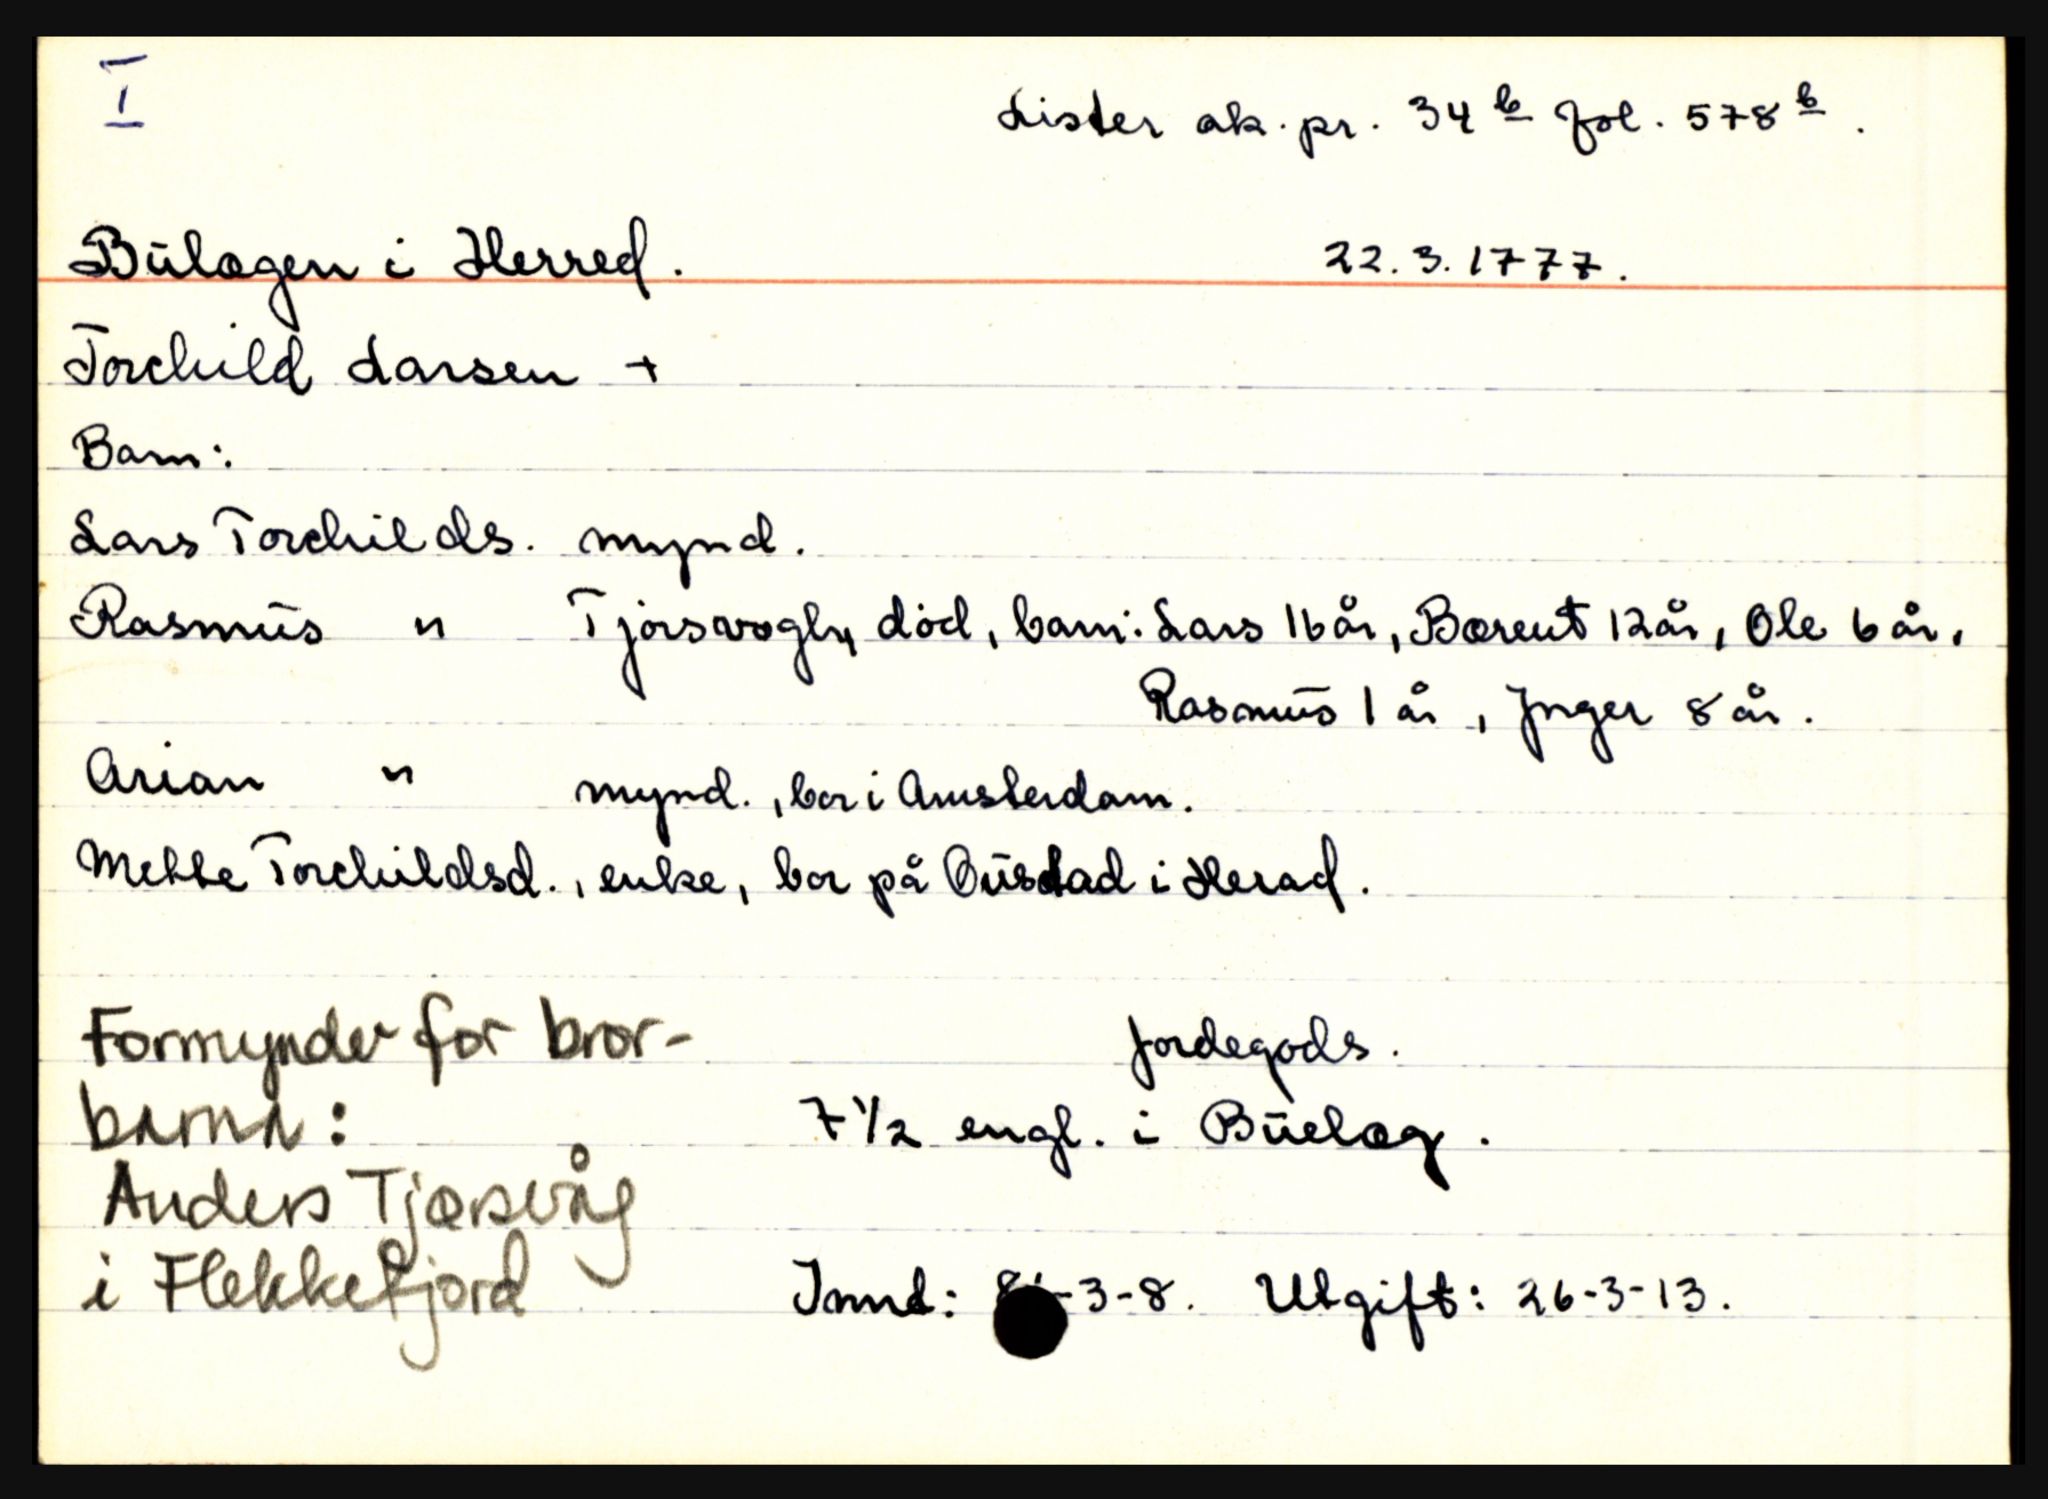 I
Lister sk. pr. 34 b fol. 578 b.
Būlægen i Herred. 22.3.1777.
Torchild Larsen +
Barn:
Lars Torchilds. mynd.
Rasmūs " Tjørsvogh, død, barn: Lars 16 år, Bærent 12 år, Ole 6 år,
Rasmūs 1 år, Jnger 8 år.
Arian " mynd., bor i Amsterdam.
Mette Torchildsd., enke, bor på Ūpstad i Herad.
Formynder for bror-
barna:
Anders Tjørsvåg
i Flekkefjord
Jordegods.
7 1/2 engl. i Būelæg.
Innt: -3-8. Utgift: 26-3-13.